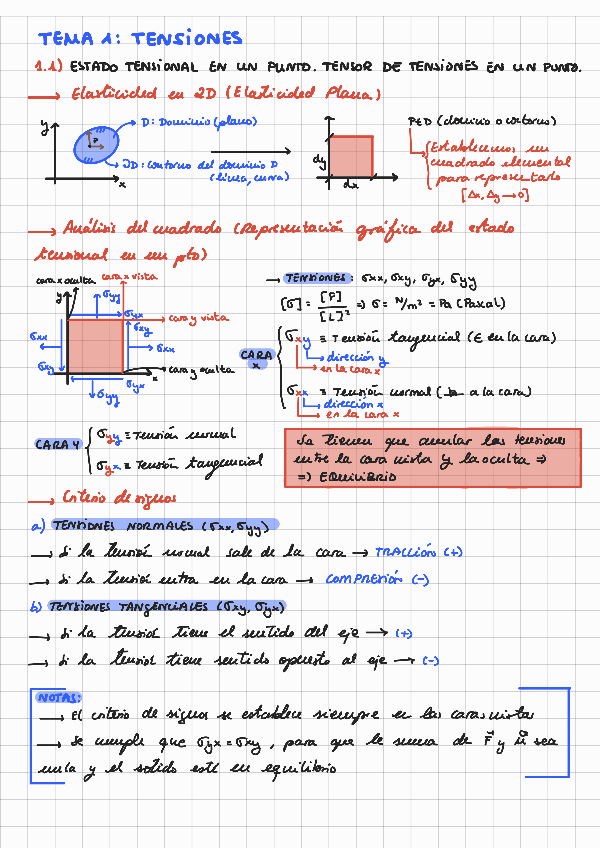 TEMA 1: TENSIONES
1.1) ESTADO TENSIONAL EN UN PUNTO. TENSOR DE TENSIONES EN UN PUNTO.
→ Elasticidad en 2D (Elasticidad Plana)
y
P
x
D: Dominio (plano)
∂D: Contorno del dominio D
(línea, curva)
dy
dx
P∈D (dominio o contorno)
Establecemos un
cuadrado elemental
para representarlo
[Δx, Δy → 0]
→ Análisis del cuadrado (Representación gráfica del estado
tensional en un pto)
cara x oculta
cara x vista
y
σyy
σyx
cara y vista
σxy
σxx
σxx
σxy
cara y oculta
σyx
x
σyy
→ TENSIONES: σxx, σxy, σyx, σyy
[σ] = [F]/[L]² ⇒ σ = N/m² = Pa (Pascal)
CARA X
σxy ≡ Tensión tangencial (∈ en la cara)
dirección y
en la cara x
σxx ≡ Tensión normal (⊥ a la cara)
dirección x
en la cara x
CARA Y
σyy ≡ Tensión normal
σyx ≡ Tensión tangencial
Se tienen que anular las tensiones
entre la cara vista y la oculta ⇒
⇒ EQUILIBRIO
→ Criterio de signos
a) TENSIONES NORMALES (σxx, σyy)
→ Si la tensión normal sale de la cara → TRACCIÓN (+)
→ Si la tensión entra en la cara → COMPRESIÓN (-)
b) TENSIONES TANGENCIALES (σxy, σyx)
→ Si la tensión tiene el sentido del eje → (+)
→ Si la tensión tiene sentido opuesto al eje → (-)
NOTAS:
→ El criterio de signos se establece siempre en las caras vistas
→ Se cumple que σyx = σxy, para que la suma de F⃗ y M⃗ sea
nula y el sólido esté en equilibrio